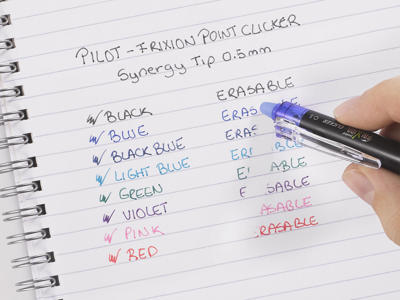 PILOT - FRIXION POINT CLICKER
Synergy Tip 0.5mm
BLACK ERASABLE
BLUE ERAS E
BLACK BLUE ERAS
LIGHT BLUE ER BLE
GREEN E ABLE
VIOLET E SABLE
PINK ASABLE
RED RASABLE